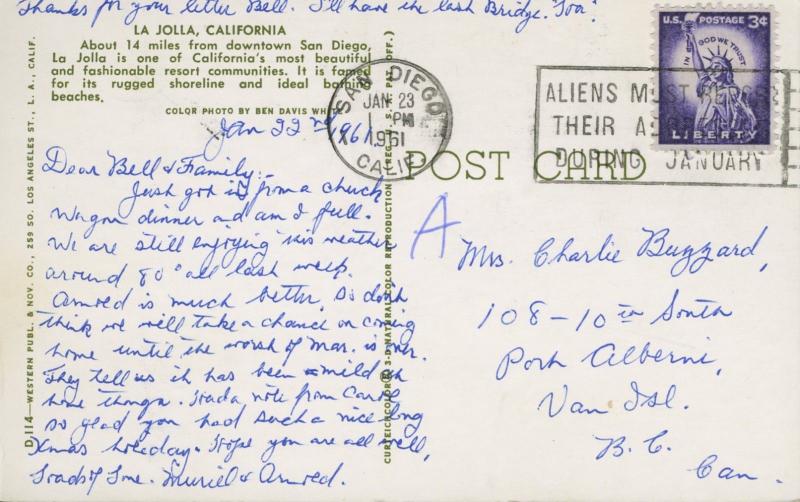 Thanks for your letter Bell. I'll have the last Bridge.
LA JOLLA, CALIFORNIA
About 14 miles from downtown San Diego,
La Jolla is one of California's most beautiful
and fashionable resort communities. It is famed
for its rugged shoreline and ideal bathing
beaches.
COLOR PHOTO BY BEN DAVIS WHITE
Jan 22nd 1961
Dear Bell & Family:-
Just got in from a chuck
wagon dinner and am I full.
We are still enjoying this weather
around 80° all last week.
Armed is much better, so don't
think we will take a chance on coming
home until the worst of Mar. is over.
They tell us it has been mild at
home though. Had a note from Carol
so glad you had such a nice long
Xmas holiday. Hope you are all well,
Loads of love. Muriel & Armed.
D.114—WESTERN PUBL. & NOV. CO., 259 SO. LOS ANGELES ST., L. A., CALIF.
CURTEICHCOLOR® 3-D NATURAL COLOR REPRODUCTION (REG. U. S. A. PAT. OFF.)
SAN DIEGO
JAN 23
PM
1961
CALIF
POST CARD
U.S. POSTAGE 3¢
IN GOD WE TRUST
LIBERTY
ALIENS MUST REPORT
THEIR ADDRESS
DURING JANUARY
A
Mrs. Charlie Buzzard,
108-10th South
Port Alberni,
Van Isl.
B.C.
Can.